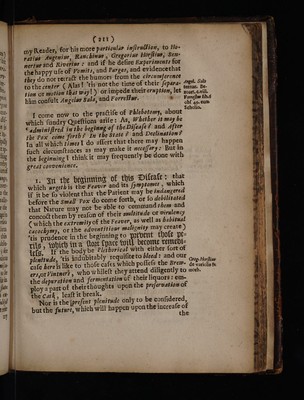 (211)
my Reader, for his more particular instruction, to Ho-
ratius Augenius, Ranchinus, Gregorius Horstius, Sen-
nertus and Riverius : and if he desire Experiments for
the happy use of Vomits, and Purges, and evidence that
they do not retract the humors from the circumference
to the center (Alas! 'tis not the time of their separa-
tion or motion that way!) or impede their eruption, let
him consult Angelus Sala, and Forrestus.
Angel. Sala
Forrestus lib. 6
obs. 43. cum
Scholio.
I come now to the practise of Phlebotomy, about
which sundry Questions arise: As, Whether it may be
administred in the begining of the Disease? and after
the Pox come forth? in the State? and Declination?
In all which times I do assert that there may happen
such circumstances as may make it necessary: But in
the beginning I think it may frequently be done with
great convenience.
1. In the beginning of this Disease: that
which urgeth is the Feaver and its symptomes, which
if it be so violent that the Patient may be indangered
before the Small Pox do come forth, or so debilitated
that Nature may not be able to command them and
concoct them by reason of their multitude or virulency
(which the extremity of the Feaver, as well as habitual
cacochymy, or the adventitious malignity may create)
'tis prudence in the beginning to prevent those pe-
rils, which in a short space will become remedi-
less. If the body be Plethorical with either sort of
plenitude, 'tis indubitably requisite to bleed: and our
case here is like to those cases which possess the Brew-
ers, or Vintners, who whilest they attend diligently to
the depuration and fermentation of their liquors: em-
ploy a part of their thoughts upon the preservation of
the Cask, least it break.
Greg. Horstius
de variolis &
morb.
Nor is the present plenitude only to be considered,
but the future, which will happen upon the increase of
the